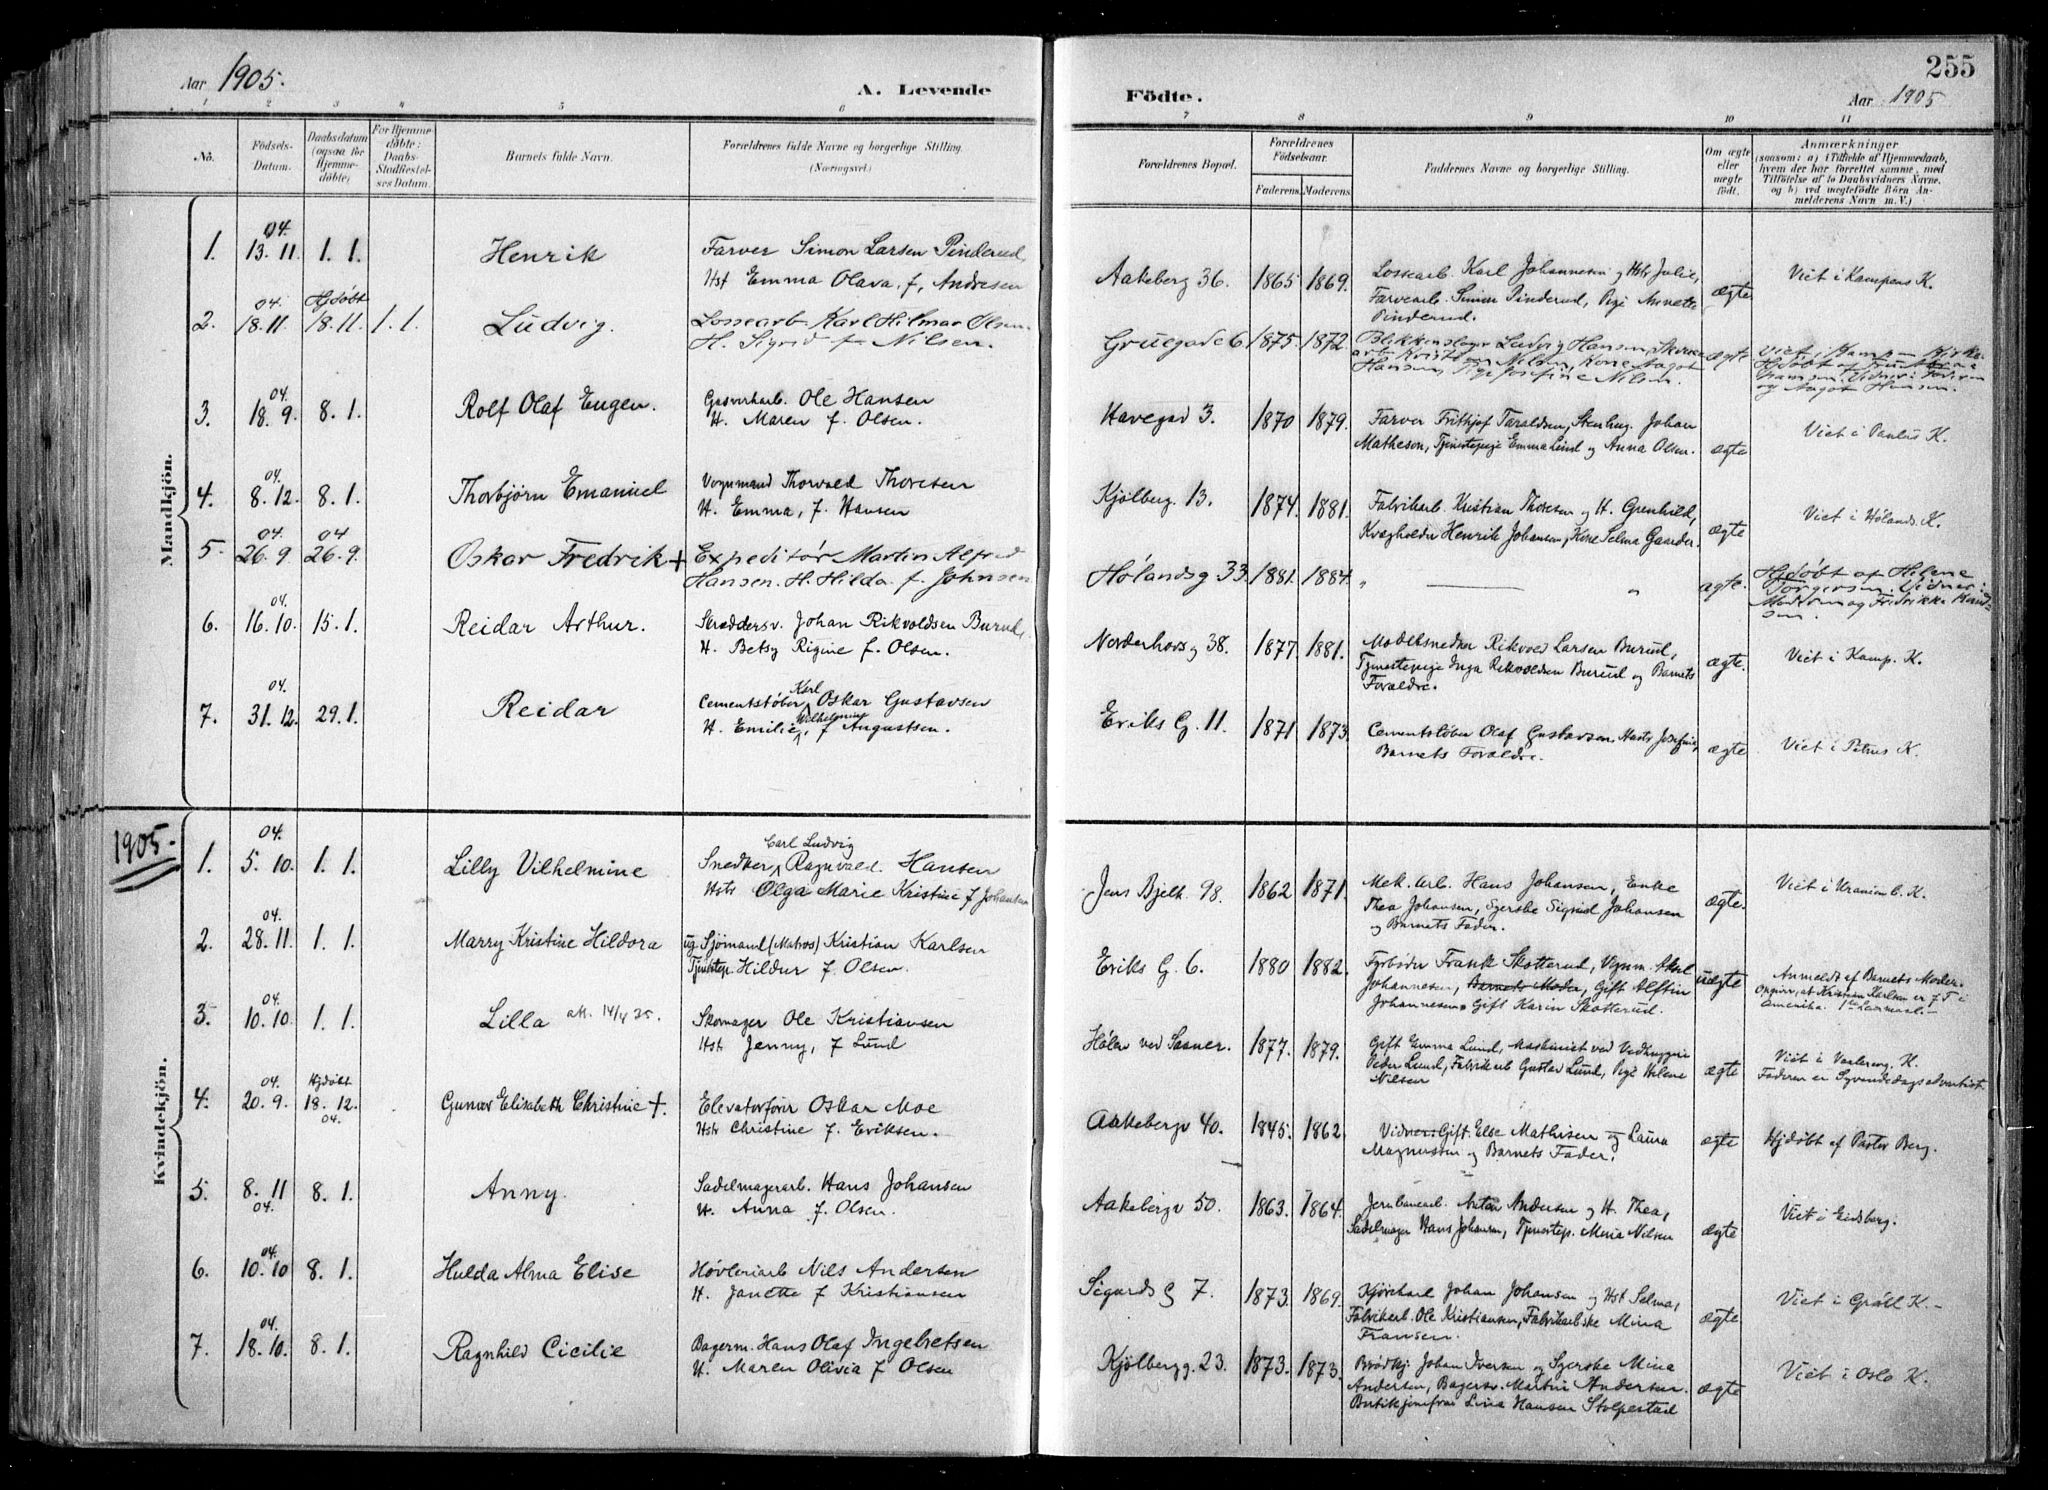 Aar 1905.
A. Levende
1 2 3 4 5 6
No. Födsels-Datum. Daabsdatum (ogsaa for Hjemmedöbte) For Hjemmedöbte: Daabs-Stadfæstelses Datum. Barnets fulde Navn. Forældrenes fulde Navne og borgerlige Stilling. (Næringsvei.)
Mandkjön.
04.
1. 13. 11. 1. 1. Henrik Farver Simon Larsen Pinderud,
Hst Emma Olava, f. Andresen
04. Hjdøbt
2. 18. 11. 18. 11. 1. 1. Ludvig. Lossearb. Karl Hilmar Olsen
H. Sigrid f. Nilsen.
04.
3. 18. 9. 8. 1. Rolf Olaf Eugen. Gasverkarb. Ole Hansen
H. Maren f. Olsen.
04.
4. 8. 12. 8. 1. Thorbjörn Emanuel Vognmand Thorvald Thoresen
H. Emma, f. Hansen
04 04
5. 26. 9 26. 9. Oskar Fredrik + Expeditør Martin Alfred
Hansen. H. Hilda f. Johnsen
04.
6. 16. 10. 15. 1. Reidar Arthur. Skræddersv. Johan Rikvoldsen Burud,
H. Betsy Rigine f. Olsen.
04. Karl
7. 31. 12. 29. 1. Reidar Cementstøber Oskar Gustavsen
H. Emilie Wilhelmine, f. Augustsen.
1905.
Kvindekjön.
04. Carl Ludvig
1. 5. 10. 1. 1. Lilly Vilhelmine Snedker Ragnvald Hansen
Hstr Olga Marie Kristine f Johansen
04.
2. 28. 11. 1. 1. Marry Kristine Hildora ug. Sjömand (Matros) Kristian Karlsen
Tjenestep. Hildur f. Olsen.
04.
3. 10. 10. 1. 1. Lilla att. 14/4 25. Skomager Ole Kristiansen
Hst Jenny, f Lund
04. Hjdöbt
4. 20. 9. 18. 12. Gunvor Elisabeth Christine +. Elevatorförer Oskar Moe
04. Hstr Christine f. Eriksen.
5. 8. 11 8. 1. Anny. Sadelmagerarb. Hans Johansen
04. H. Anna f. Olsen.
04.
6. 10. 10 8. 1. Hulda Alma Elise Høvleriarb Nils Andersen
H. Janette f Kristiansen
04.
7. 18. 10. 8. 1. Ragnhild Cicilie Bagerm. Hans Olaf Ingebretsen
H. Maren Olivia f Olsen
255
Födte.
Aar 1905
7 8 9 10 11
Forældrenes Bopæl. Forældrenes Födselsaar. Faderens. Moderens. Faddernes Navne og borgerlige Stilling. Om ægte eller uægte födt. Anmærkninger (saasom: a) i Tilfælde af Hjemmedaab, hvem der har forrettet samme, med Tilföielse af to Daabsvidners Navne, og b) ved uægtefödte Börn Anmelderens Navn m. V.)
Aakeberg 36. 1865 1869. Lossearb. Karl Johannesen og Hstr Julie, ægte Viet i Kampens K.
Farvearb. Simon Pinderud, Pige Annette
Pinderud.
Gruegade 6 1875. 1872. Blikkenslager Ludvig Hansen, ægte Viet i Kamp
Kristian Nilsen, Kone Aagot Hjdøbt af Fru
Hansen, Pige Josefine Nilsen. Vidner: Faderen
og Aagot Hansen.
Havegad 3. 1870 1879. Farver Frithjof Taraldsen, Stenhug. Johan ægte Viet i Paulus K.
Matheson, Tjenestepige Emma Lund og Anna Olsen.
Kjölberg. 13. 1874. 1881. Fabrikarb. Kristian Thoresen og H. Grenhild, ægte Viet i Hølands K.
Kvægholder Henrik Johansen, Kone Selma Gaarder.
Hølandsg 33 1881. 1884. " — " ægte. Hjdöbt af Helene
Jörgersen. Vidner:
Moderen og Fredrikke Hansen.
Norderhovsg 38. 1877. 1881. Modelsnedker Rikvold Larsen Burud, ægte. Viet i Kamp. K.
Tjenestepige Inga Rikvoldsen Burud og Barnets
Forældre.
Eriks G. 11. 1871 1873. Cementstøber Olaf Gustavsen, Hustr Josefine, ægte Viet i Petrus K.
Barnets Forældre.
Jens Bjelk. 98. 1862 1871. Mek. Arb. Hans Johansen, Enke ægte. Viet i Uranienb. K.
Thea Johansen, Syerske Sigrid Johansen
og Barnets Fader.
Eriks G. 6. 1880 1882. Fyrbøder Frank Skotterud, Vognm. uægte Anmeldt af Barnets Moder.
Johannesen, Barnets Moder, Gift Alftin Opgivr, at Kristian Karlsen er f. T. i
Johannesen. Gift Karin Skotterud. Amerika.
Hølen ved Saaner. 1877. 1879. Gift Emma Lund, Maskinist ved Vedhuggeri ægte Viet i Vaalereng. K.
Peder Lund, Fabrikarb Gustav Lund, Pige Helene Faderen er Syvendedagsadventist.
Nilsen
Aakebergv 40. 1845. 1862. Vidner: Gift. Else Mathisen og Laura ægte Hjdöbt af Pastor Berg.
Magnussen og Barnets Fader.
Aakebergv 50. 1863. 1864. Jernbanearb. Anton Andersen og H. Thea, ægte Viet i Eidsberg.
Sadelmager Hans Johansen, Tjenestep. Mina Nilsen
Sigurds G 7. 1873. 1869. Kjörekarl Johan Johansen og Hst Selma, ægte Viet i Grøll K.
Fabrikarb. Ole Kristiansen, Fabrikarbske Mina
Fransen.
Kjölbergg. 23. 1873. 1873. Brödkj. Johan Iversen og Syerske Mina ægte Viet i Oslo K.
Andersen, Bagersv. Martin Andersen.
Butikjomfru Lina Hansen Stolpestad